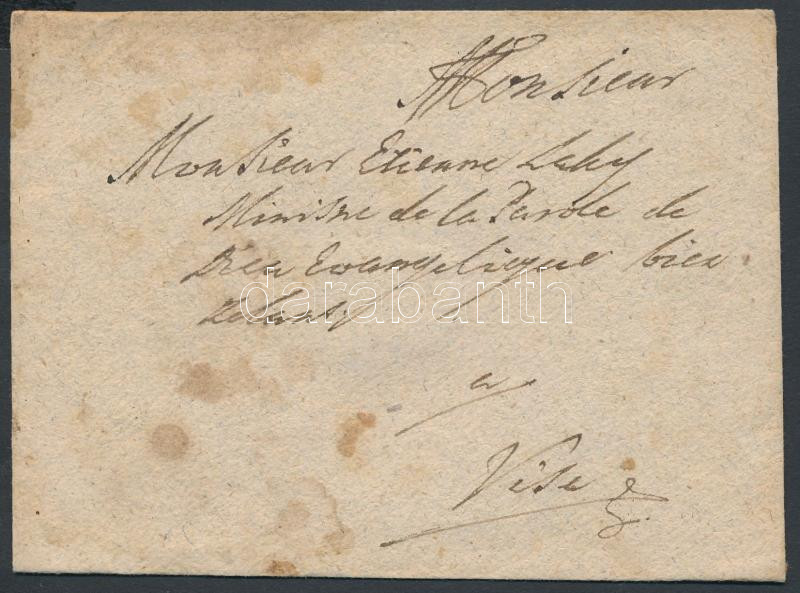 Monsieur
Monsieur Etienne Laky
Ministre de la Parole de
Dieu Evangelique bien
a
Vése
darabanth